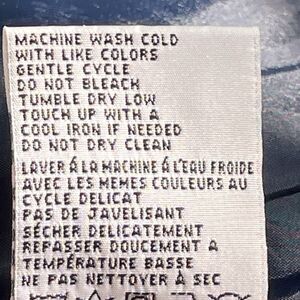 MACHINE WASH COLD
WITH LIKE COLORS
GENTLE CYCLE
DO NOT BLEACH
TUMBLE DRY LOW
TOUCH UP WITH A
COOL IRON IF NEEDED
DO NOT DRY CLEAN
LAVER Á LA MACHINE Á L'EAU FROIDE
AVEC LES MEMES COULEURS AU
CYCLE DELICAT
PAS DE JAVELISANT
SÉCHER DELICATEMENT
REPASSER DOUCEMENT A
TEMPÉRATURE BASSE
NE PAS NETTOYER À SEC